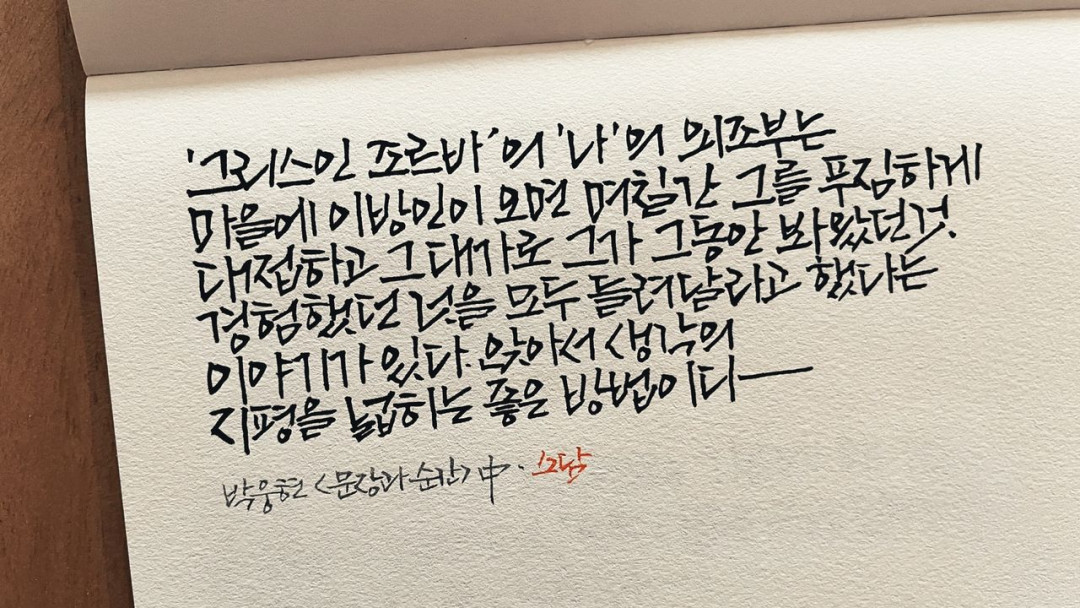 '그리스인 조르바'의 '나'의 외조부는
마을에 이방인이 오면 며칠간 그를 푸짐하게
대접하고 그 대가로 그가 그동안 봐 왔던 것.
경험했던 것을 모두 들려달라고 했다는
이야기가 있다. 앉아서 생각의
지평을 넓히는 좋은 방법이다
박웅현 <문장과 순간> 中.